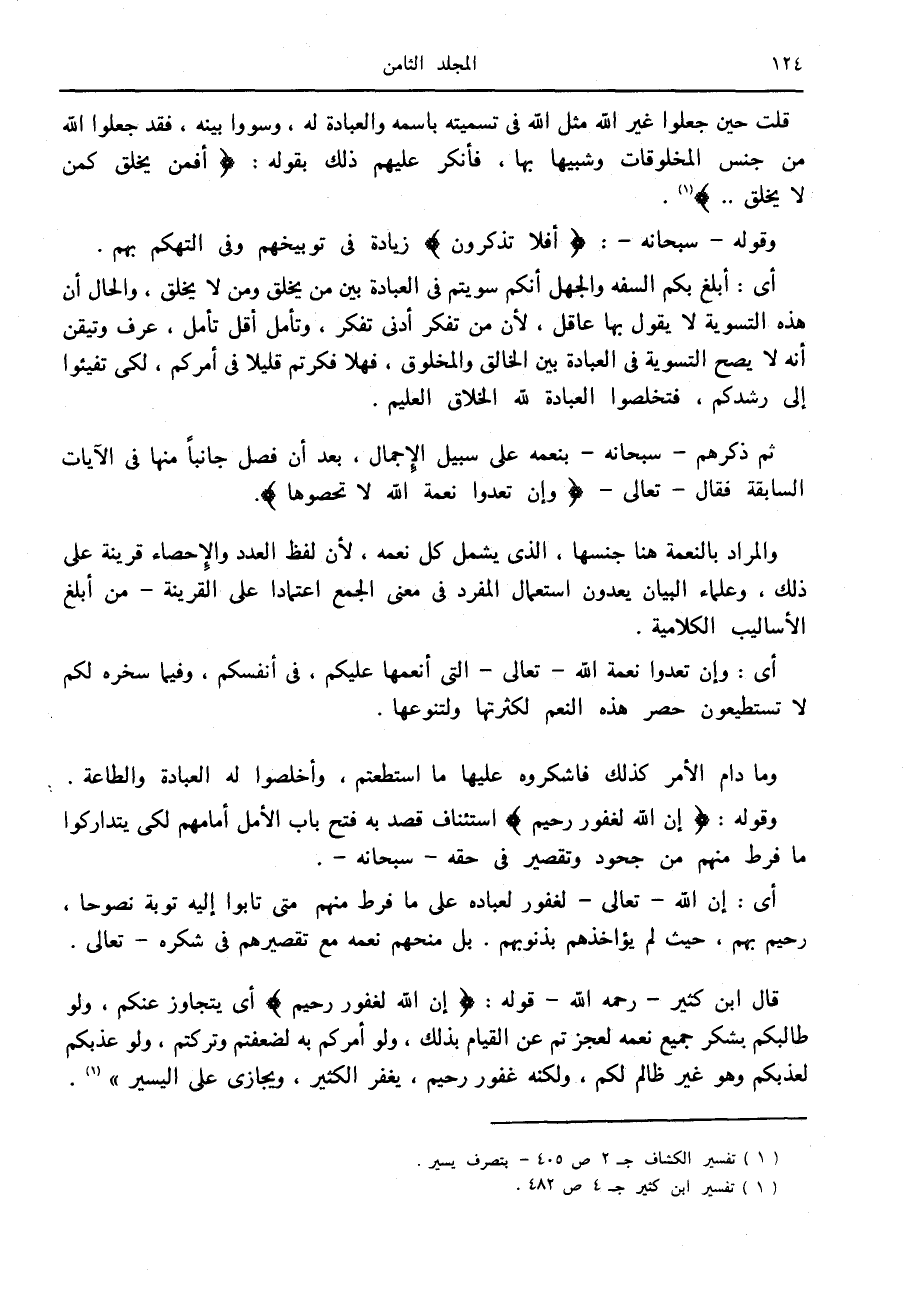 ١٢٤ المجلد الثامن
قلت حين جعلوا غير الله مثل الله فى تسميته باسمه والعبادة له ، وسووا بينه ، فقد جعلوا الله
من جنس المخلوقات وشبيها بها ، فأنكر عليهم ذلك بقوله : ﴿ أفمن يخلق كمن
لا يخلق .. ﴾(١) .
وقوله – سبحانه – : ﴿ أفلا تذكرون ﴾ زيادة فى توبيخهم وفى التهكم بهم .
أى : أبلغ بكم السفه والجهل أنكم سويتم فى العبادة بين من يخلق ومن لا يخلق ، والحال أن
هذه التسوية لا يقول بها عاقل ، لأن من تفكر أدنى تفكر ، وتأمل أقل تأمل ، عرف وتيقن
أنه لا يصح التسوية فى العبادة بين الخالق والمخلوق ، فهلا فكرتم قليلا فى أمركم ، لكى تفيئوا
إلى رشدكم ، فتخلصوا العبادة لله الخلاق العليم .
ثم ذكرهم – سبحانه – بنعمه على سبيل الإجمال ، بعد أن فصل جانباً منها فى الآيات
السابقة فقال – تعالى – ﴿ وإن تعدوا نعمة الله لا تحصوها ﴾.
والمراد بالنعمة هنا جنسها ، الذى يشمل كل نعمه ، لأن لفظ العدد والإحصاء قرينة على
ذلك ، وعلماء البيان يعدون استعمال المفرد فى معنى الجمع اعتمادا على القرينة – من أبلغ
الأساليب الكلامية .
أى : وإن تعدوا نعمة الله – تعالى – التى أنعمها عليكم ، فى أنفسكم ، وفيما سخره لكم
لا تستطيعون حصر هذه النعم لكثرتها ولتنوعها .
وما دام الأمر كذلك فاشكروه عليها ما استطعتم ، وأخلصوا له العبادة والطاعة .
وقوله : ﴿ إن الله لغفور رحيم ﴾ استئناف قصد به فتح باب الأمل أمامهم لكى يتداركوا
ما فرط منهم من جحود وتقصير فى حقه – سبحانه – .
أى : إن الله – تعالى – لغفور لعباده على ما فرط منهم متى تابوا إليه توبة نصوحا ،
رحيم بهم ، حيث لم يؤاخذهم بذنوبهم . بل منحهم نعمه مع تقصيرهم فى شكره – تعالى .
قال ابن كثير – رحمه الله – قوله : ﴿ إن الله لغفور رحيم ﴾ أى يتجاوز عنكم ، ولو
طالبكم بشكر جميع نعمه لعجز تم عن القيام بذلك ، ولو أمركم به لضعفتم وتركتم ، ولو عذبكم
لعذبكم وهو غير ظالم لكم ، ولكنه غفور رحيم ، يغفر الكثير ، ويجازى على اليسير » (١) .
( ١ ) تفسير الكشاف جـ ٢ ص ٤٠٥ – بتصرف يسير .
( ١ ) تفسير ابن كثير جـ ٤ ص ٤٨٢ .